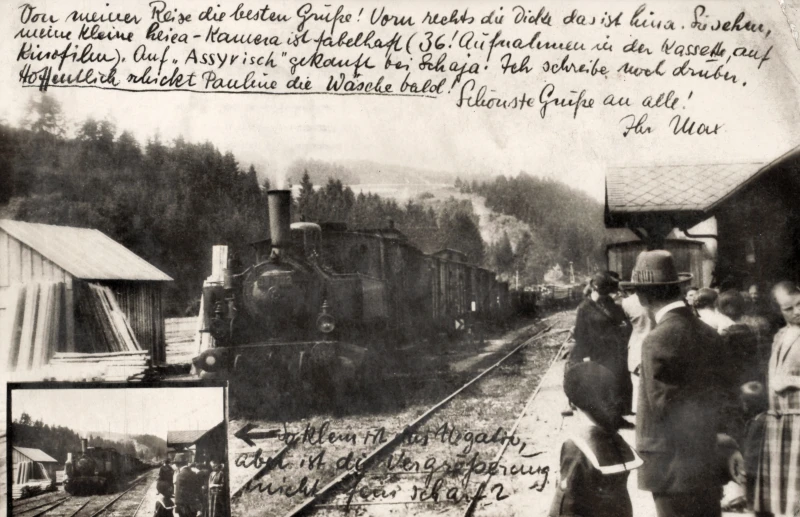 Von meiner Reise die besten Grüße! Vorn rechts die Dicke das ist Lina. Sie sehen,
meine kleine Leica-Kamera ist fabelhaft (36! Aufnahmen in der Kassette, auf
Kinofilm). Auf „Assyrisch" gekauft bei Schaja! Ich schreibe noch drüber.
Hoffentlich schickt Pauline die Wäsche bald!
Schönste Grüße an alle!
Ihr Max
← So klein ist das Negativ,
aber ist die Vergrößerung
nicht fein scharf?